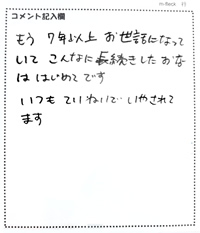 コメント記入欄
もう 7年以上 お世話になって
いて こんなに 長続きした おな
は はじめて です
いつも ていねいで いやされて
ます